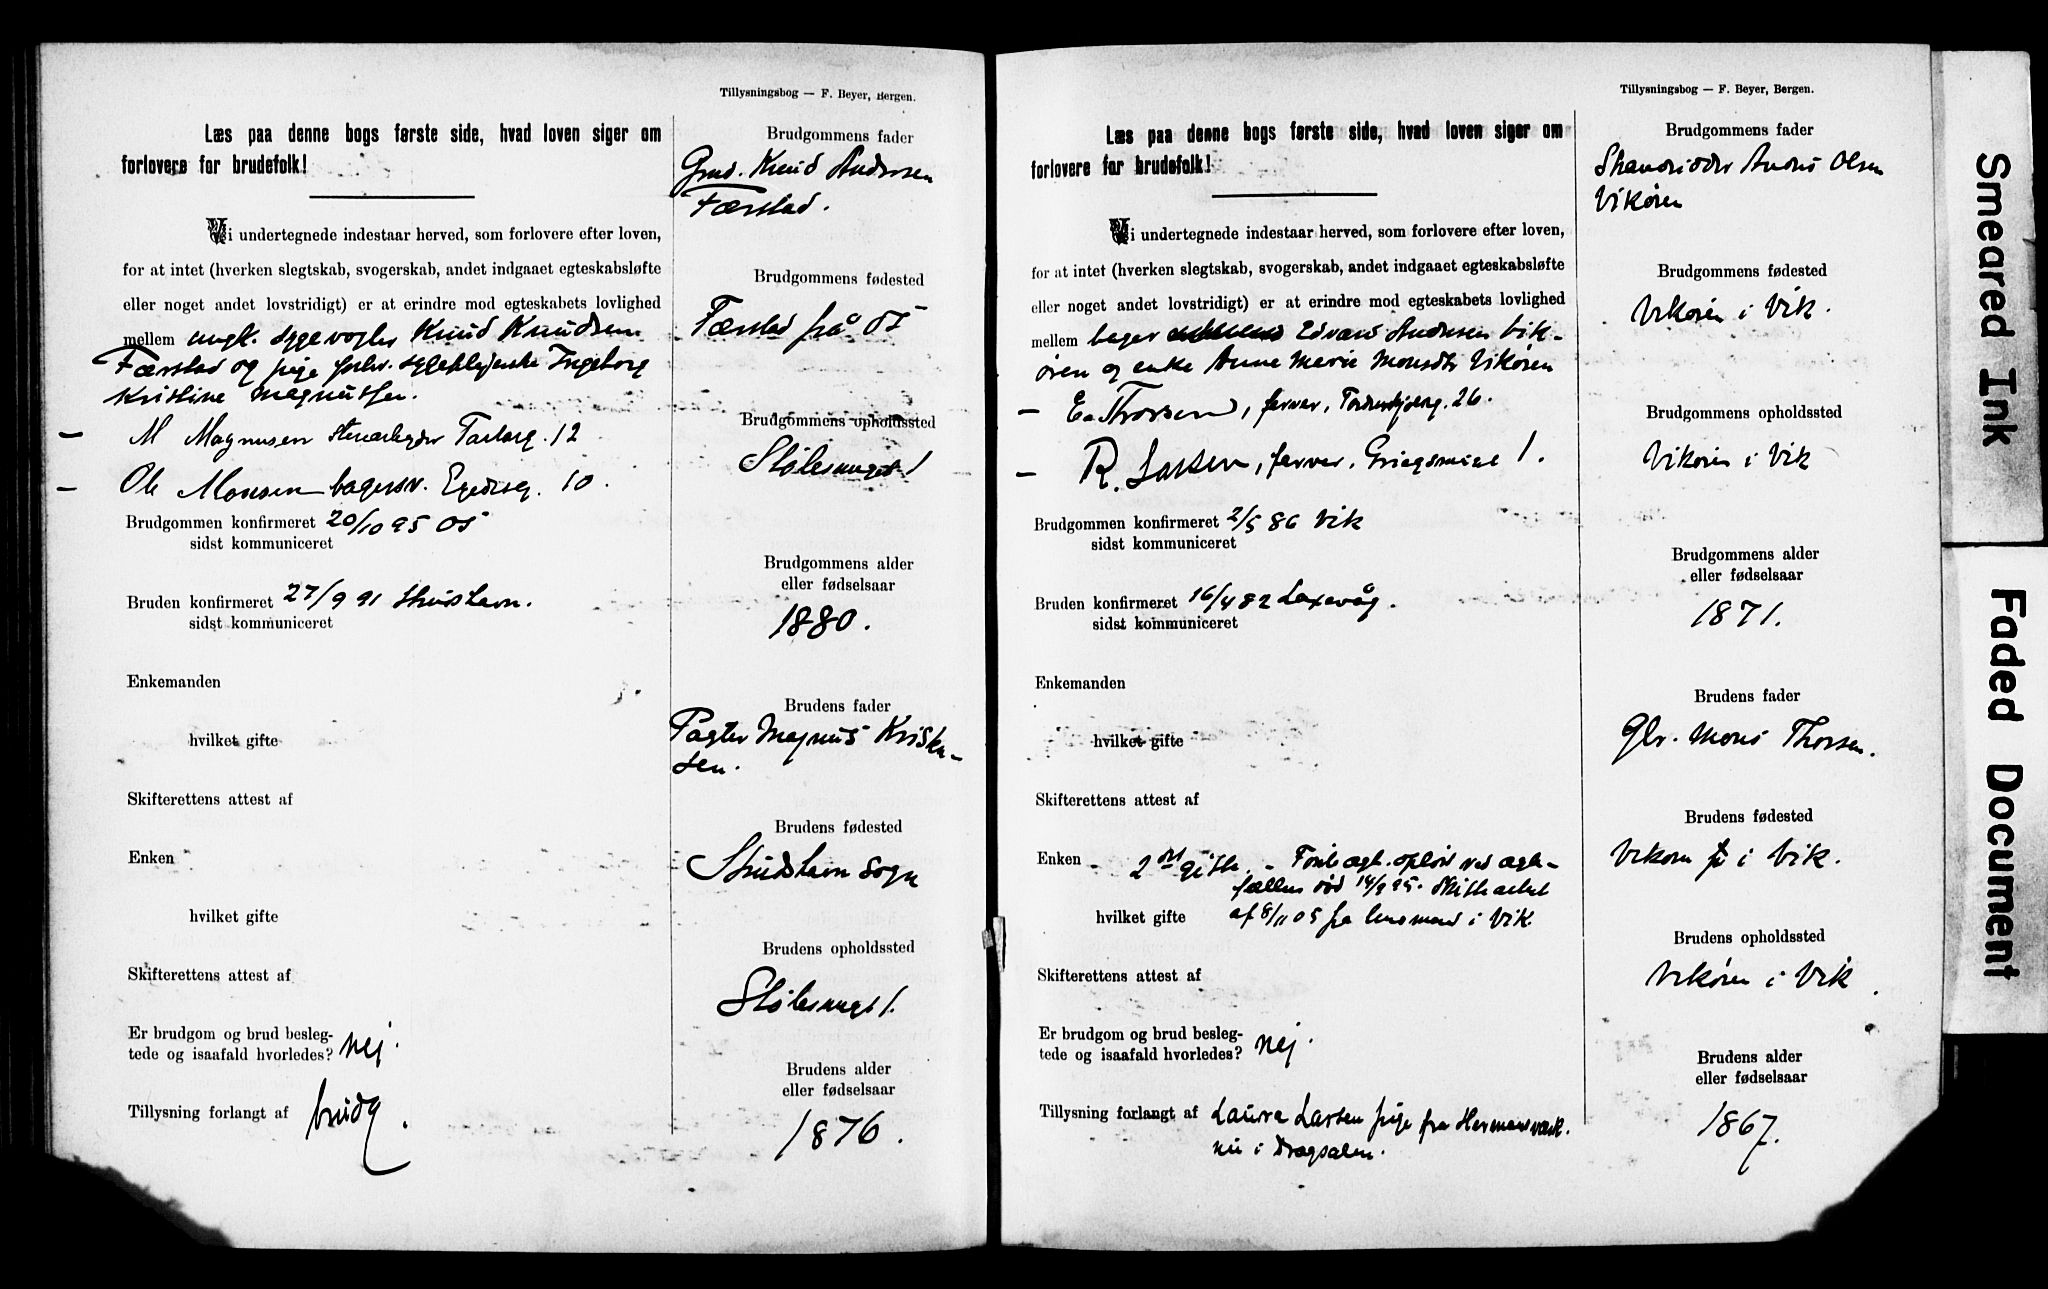 Tillysningsbog — F. Beyer, Bergen.
Læs paa denne bogs første side, hvad loven siger om
forlovere for brudefolk!
Vi undertegnede indestaar herved, som forlovere efter loven,
for at intet (hverken slegtskab, svogerskab, andet indgaaet egteskabsløfte
eller noget andet lovstridigt) er at erindre mod egteskabets lovlighed
mellem ungk. sygevogter Knud Knudsen
Færstad og pige forhv. Ingeborg
Kristine Magnussen.
— M Magnusen 12
— Ole Monsen bagersv. 10.
Brudgommen konfirmeret 20/10 95 Os
sidst kommuniceret
Bruden konfirmeret 27/9 91
sidst kommuniceret
Enkemanden
hvilket gifte
Skifterettens attest af
Enken
hvilket gifte
Skifterettens attest af
Er brudgom og brud beslegtede og isaafald hvorledes? nej.
Tillysning forlangt af brudg.
Brudgommens fader
Gmd. Knud Andersen
Færstad.
Brudgommens fødested
Færstad på Os
Brudgommens opholdssted
Brudgommens alder
eller fødselsaar
1880.
Brudens fader
Magnus
Brudens fødested
sogn
Brudens opholdssted
Brudens alder
eller fødselsaar
1876.
Tillysningsbog — F. Beyer, Bergen.
Læs paa denne bogs første side, hvad loven siger om
forlovere for brudefolk!
Vi undertegnede indestaar herved, som forlovere efter loven,
for at intet (hverken slegtskab, svogerskab, andet indgaaet egteskabsløfte
eller noget andet lovstridigt) er at erindre mod egteskabets lovlighed
mellem bager Edvard Andersen Vik-
øren og enke Anne Marie Monsdtr Vikøren
— E. Thorsen, farver, 26.
— R. Larsen, farver, 1.
Brudgommen konfirmeret 2/5 86 Vik
sidst kommuniceret
Bruden konfirmeret 16/4 82 Laxevåg.
sidst kommuniceret
Enkemanden
hvilket gifte
Skifterettens attest af
Enken 2det gifte. - Forr. ægt. opløst ved ægte-
fælles død 14/9 95. Skifteattest
hvilket gifte af 8/11 05 fra lensmand i Vik.
Skifterettens attest af
Er brudgom og brud beslegtede og isaafald hvorledes? nej.
Tillysning forlangt af Laura Larsen pige fra Hermansverk.
nu i Dragsalen.
Brudgommens fader
Anders Olsen
Vikøren
Brudgommens fødested
Vikøren i Vik.
Brudgommens opholdssted
Vikøren i Vik
Brudgommens alder
eller fødselsaar
1871.
Brudens fader
Mons Thorsen.
Brudens fødested
Vikøren i Vik.
Brudens opholdssted
Vikøren i Vik.
Brudens alder
eller fødselsaar
1867.
Smeared Ink
Faded Document